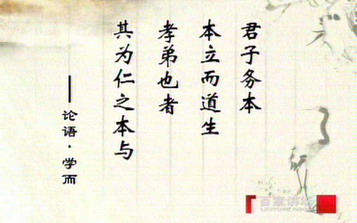 君子务本
本立而道生
孝弟也者
其为仁之本与
——论语·学而
百家讲坛